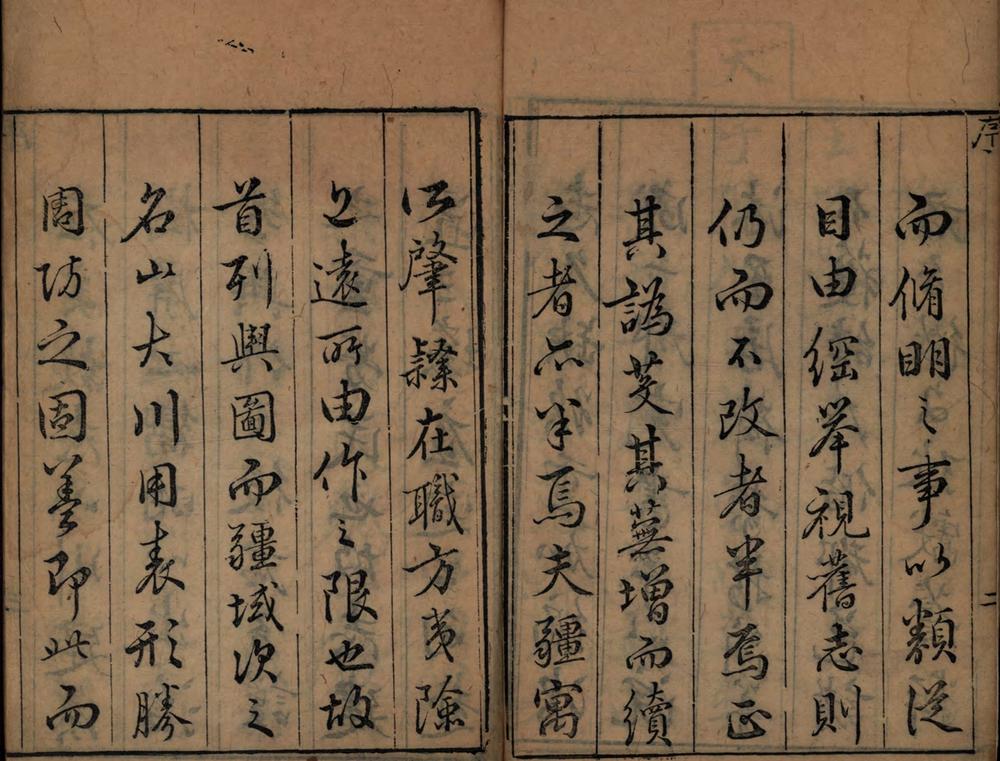 序
而脩明之事以類從
目由經舉視舊志則
仍而不改者半焉正
其譌芟其蕪增而續
之者亦半焉夫疆寓
二
所肇隸在職方夷險
迩遠所由作之限也故
首列輿圖而疆域次之
名山大川用表形勝
周防之固善即此而